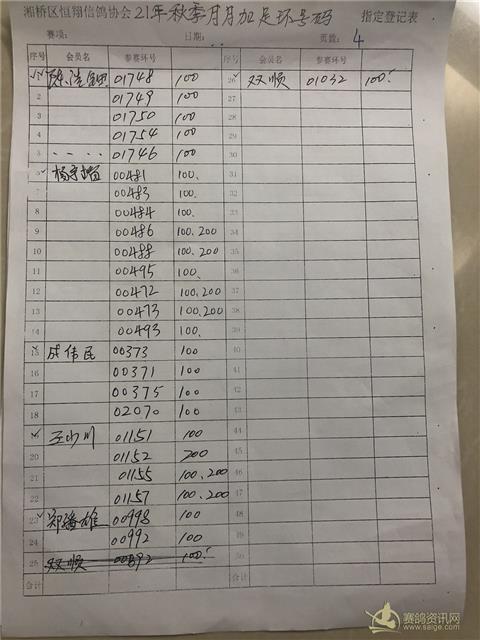 湘桥区恒翔信鸽协会 21年秋季月月加足环号码 指定登记表
赛项: 日期: 页数: 4
序号 会员名 参赛环号 序号 会员名 参赛环号
01748 100 26 双顺 01032 100
2 01749 100 27
3 01750 100 28
4 01754 100 29
5 01746 100 30
6 00481 100. 31
7 00483 100. 32
8 00484 100. 33
9 00486 100.200 34
10 00488 100.200 35
11 00495 100. 36
12 00472 100.200 37
13 00473 100.200 38
14 00493 100. 39
15 成伟民 00373 100 40
16 00371 100 41
17 00375 100 42
18 02070 100 43
19 王少川 01151 100 44
20 01152 200 45
21 01155 100.200 46
22 01157 100.200 47
23 00998 100 48
24 00992 100 49
25 双顺 100 50
合计 合计
赛鸽资讯网
www.saige.com